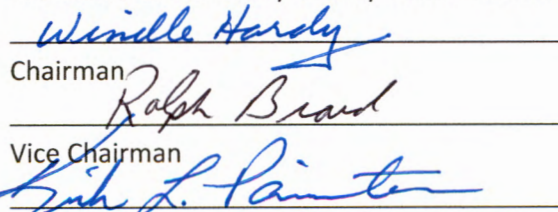 Windle Hardy
Chairman
Ralph Braud
Vice Chairman
Kirk L. Painter